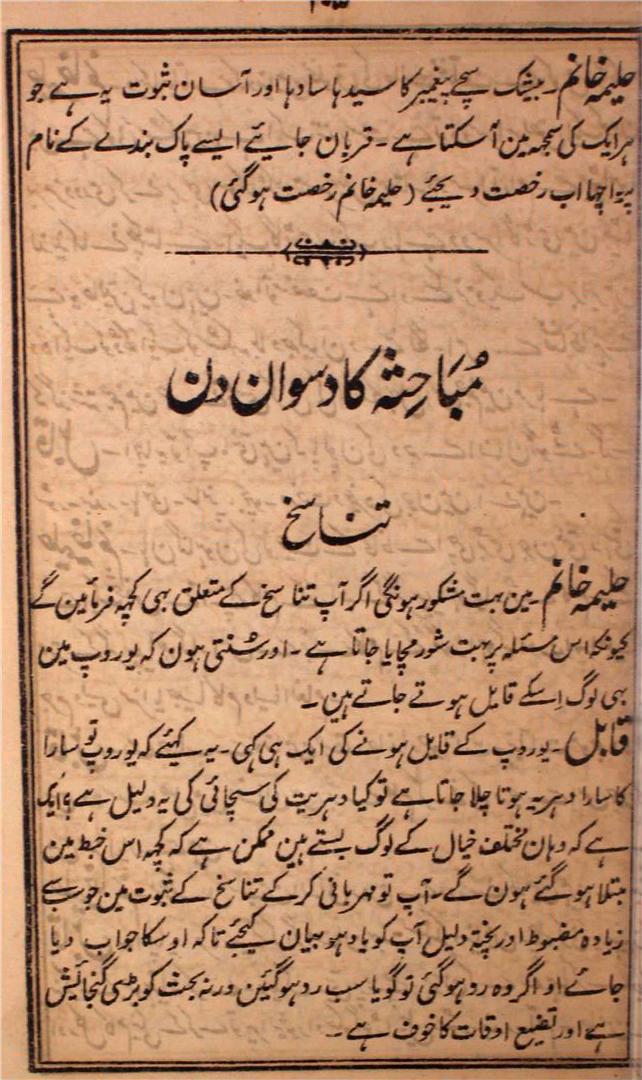 حلیمہ خانم ۔ بیشک سچے پیغمبر کا سیدہا سادہا اور آسان ثبوت یہ ہے جو
ہر ایک کی سمجہہ مین آسکتا ہے ۔ قربان جایئے ایسے پاک بندے کے نام
پر ۔ اچہا اب رخصت دیجئے (حلیمہ خانم رخصت ہوگئی)
مُبَاحِثہ کا دسوان دن
تناسخ
حلیمہ خانم ۔ مین بہت مشکور ہونگی اگر آپ تناسخ کے متعلق بہی کچہہ فرمأمین گے
کیونکہ اس مسئلہ پر بہت شور مچایا جاتا ہے ۔ اور سُنتی ہون کہ یوروپ مین
بہی لوگ اِسکے قایل ہوتے جاتے ہین ۔
قابل) ۔ یوروپ کے قایل ہونے کی ایک ہی کہی ۔ یہ کہئے کہ یوروپ تو سارا
کا سارا دہریہ ہوتا چلا جاتا ہے تو کیا دہریت کی سچائی کی یہ دلیل ہے ؟ ایک
ہے کہ وہان مختلف خیال کے لوگ بستے ہین ممکن ہے کہ کچہہ اس خبط مین
مبتلا ہو گئے ہون گے ۔ آپ تو مہربانی کرکے تناسخ کے ثبوت مین جو سب سے
زیادہ مضبوط اور پختہ دلیل آپ کو یاد ہو بیان کیجئے تاکہ اوسکا جواب دیا
جائے او اگر وہ رد ہوگئی تو گویا سب رد ہوگئین ورنہ بحث کو بڑی گنجائیش
ہے اور تضیع اوقات کا خوف ہے ۔